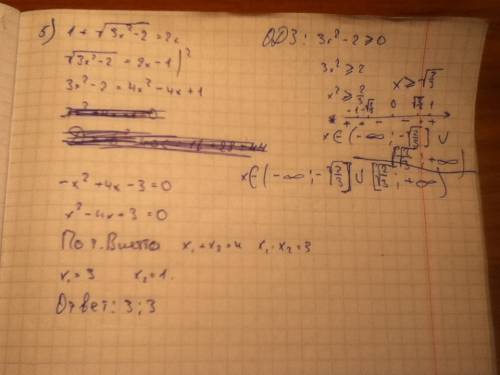 5) 1 + √3x²-2 = 2x
√3x²-2 = 2x-1 |²
3x²-2 = 4x²-4x+1
-x²+4x-3=0
x²-4x+3=0
По т. Виета x₁+x₂=4 x₁·x₂=3
x₁=3 x₂=1.
Ответ: 3;3
ОДЗ: 3x²-2≥0
3x²≥2
x²≥2/3 x≥-√2/3
-1 -√2/3 0 √2/3 1
x∈(-∞; -√2/3] ∪
[√2/3; +∞)
x∈(-∞; -√2/3] ∪ [√2/3; +∞)